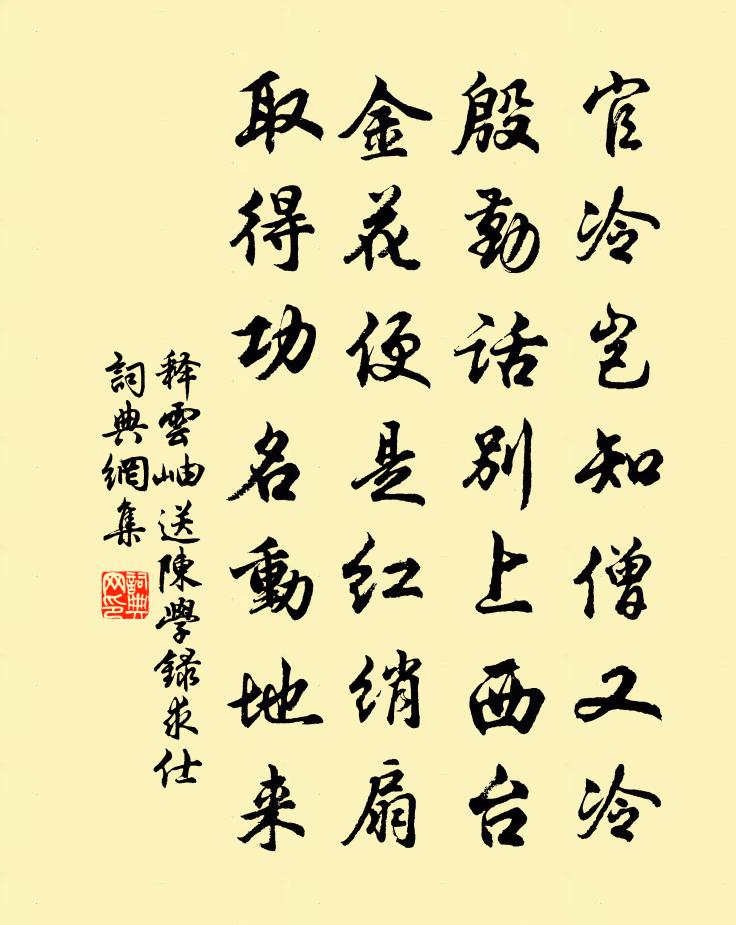 官冷岂知僧又冷
殷勤话别上西台
金花便是红绡扇
取得功名動地来
释雲岫送陳學録求仕
詞典網集
詞典网印